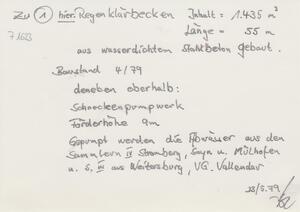 Zu ① hier: Regenklärbecken Inhalt = 1.435 m³
71623
Länge = 55 m
aus wasserdichtem Stahlbeton gebaut.
Baustand 4/79
daneben oberhalb:
Schneckenpumpwerk
Förderhöhe 9m
Gepumpt werden die Abwässer aus den
Sammlern IV Stromberg, Sayn u. Mülhofen
u. S. III aus Weitersburg, VG. Vallendar
23/5.79